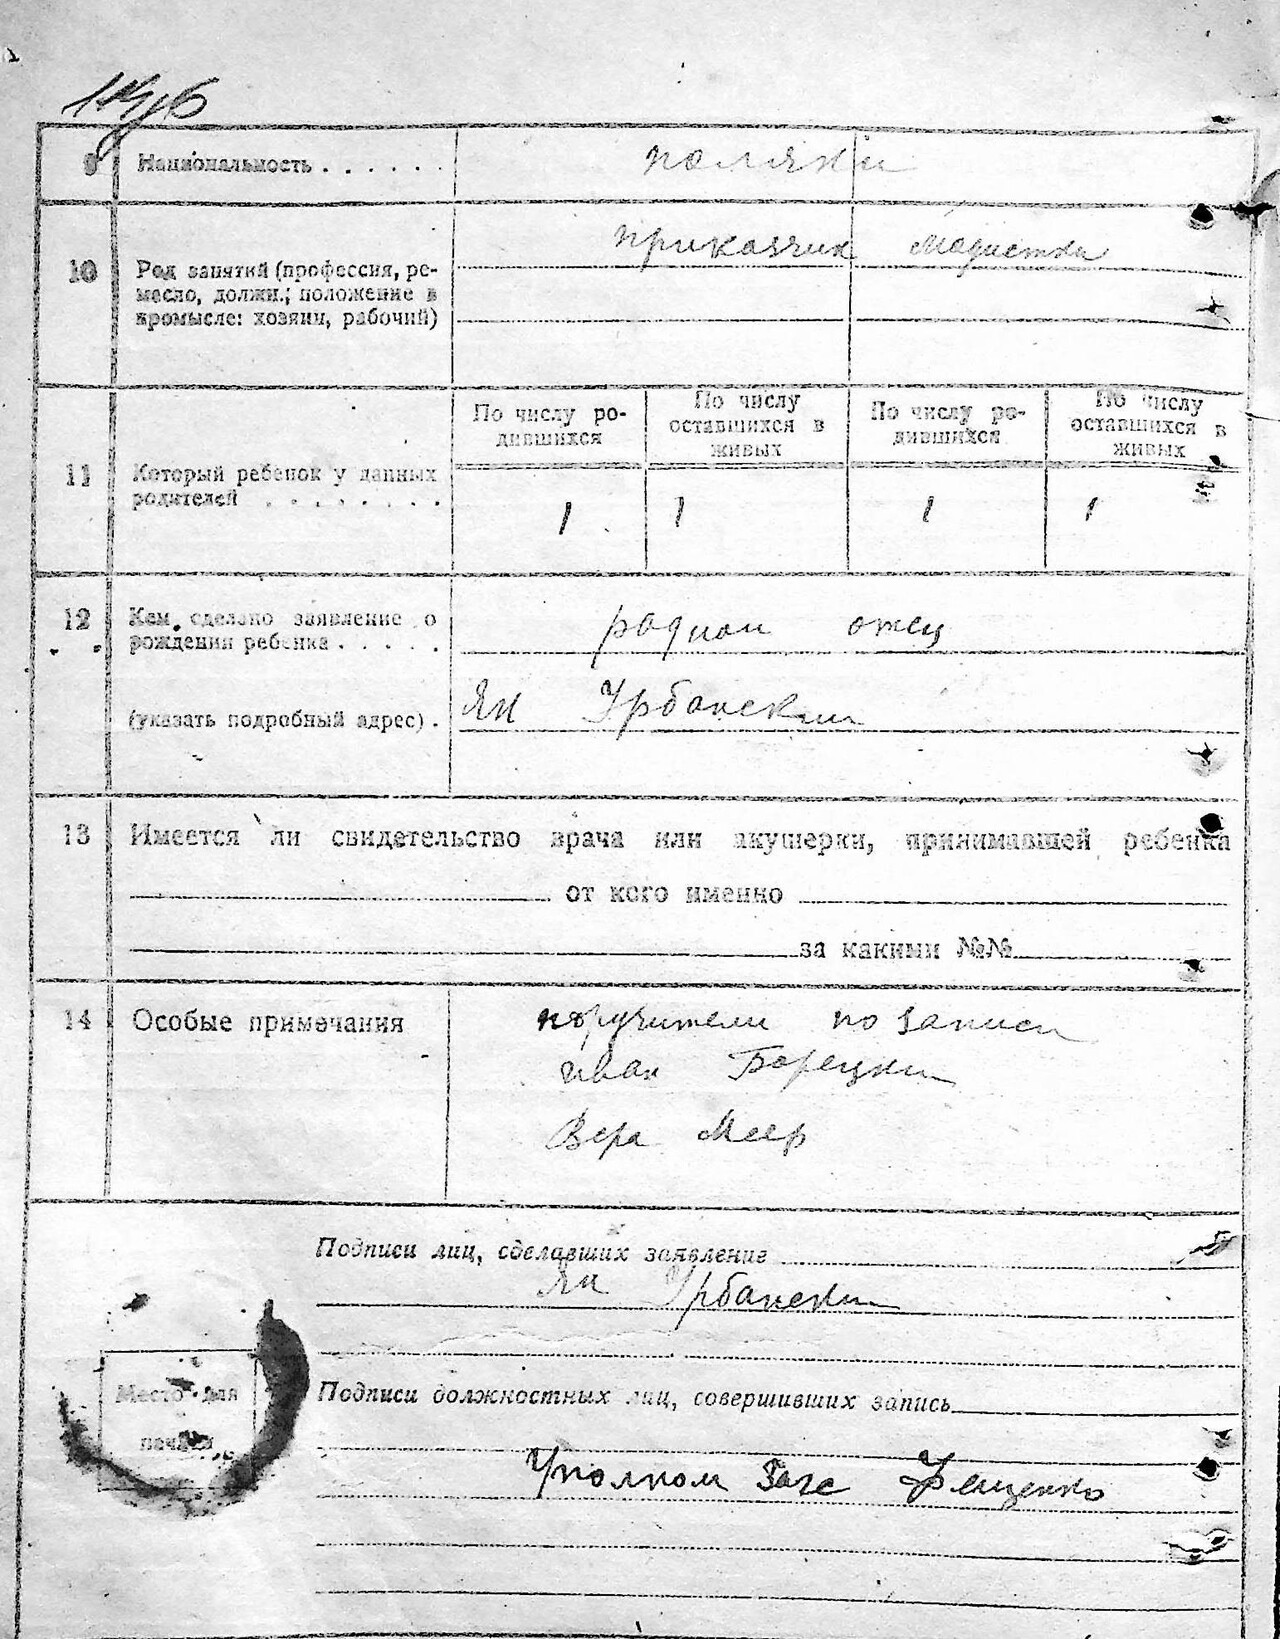 9 Национальность . . . . . . поляки
10 Род занятий (профессия, ре-
месло, должн.; положение в
промысле: хозяин, рабочий)
приказчик модистка
11 Который ребенок у данных
родителей . . . . . . . .
По числу ро-
дившихся
По числу
оставшихся в
живых
По числу ро-
дившихся
По числу
оставшихся в
живых
1 1 1 1
12 Кем сделано заявление о
рождении ребенка . . . . .
родной отец
(указать подробный адрес) .
Ян Урбанский
13 Имеется ли свидетельство врача или акушерки, принимавшей ребенка
от кого именно
за какими №№
14 Особые примечания
поручители по записи
иван Борецкий
Вера Меер
Подписи лиц, сделавших заявление
Ян Урбанский
Место для
печати
Подписи должностных лиц, совершивших запись
Уполном Загс